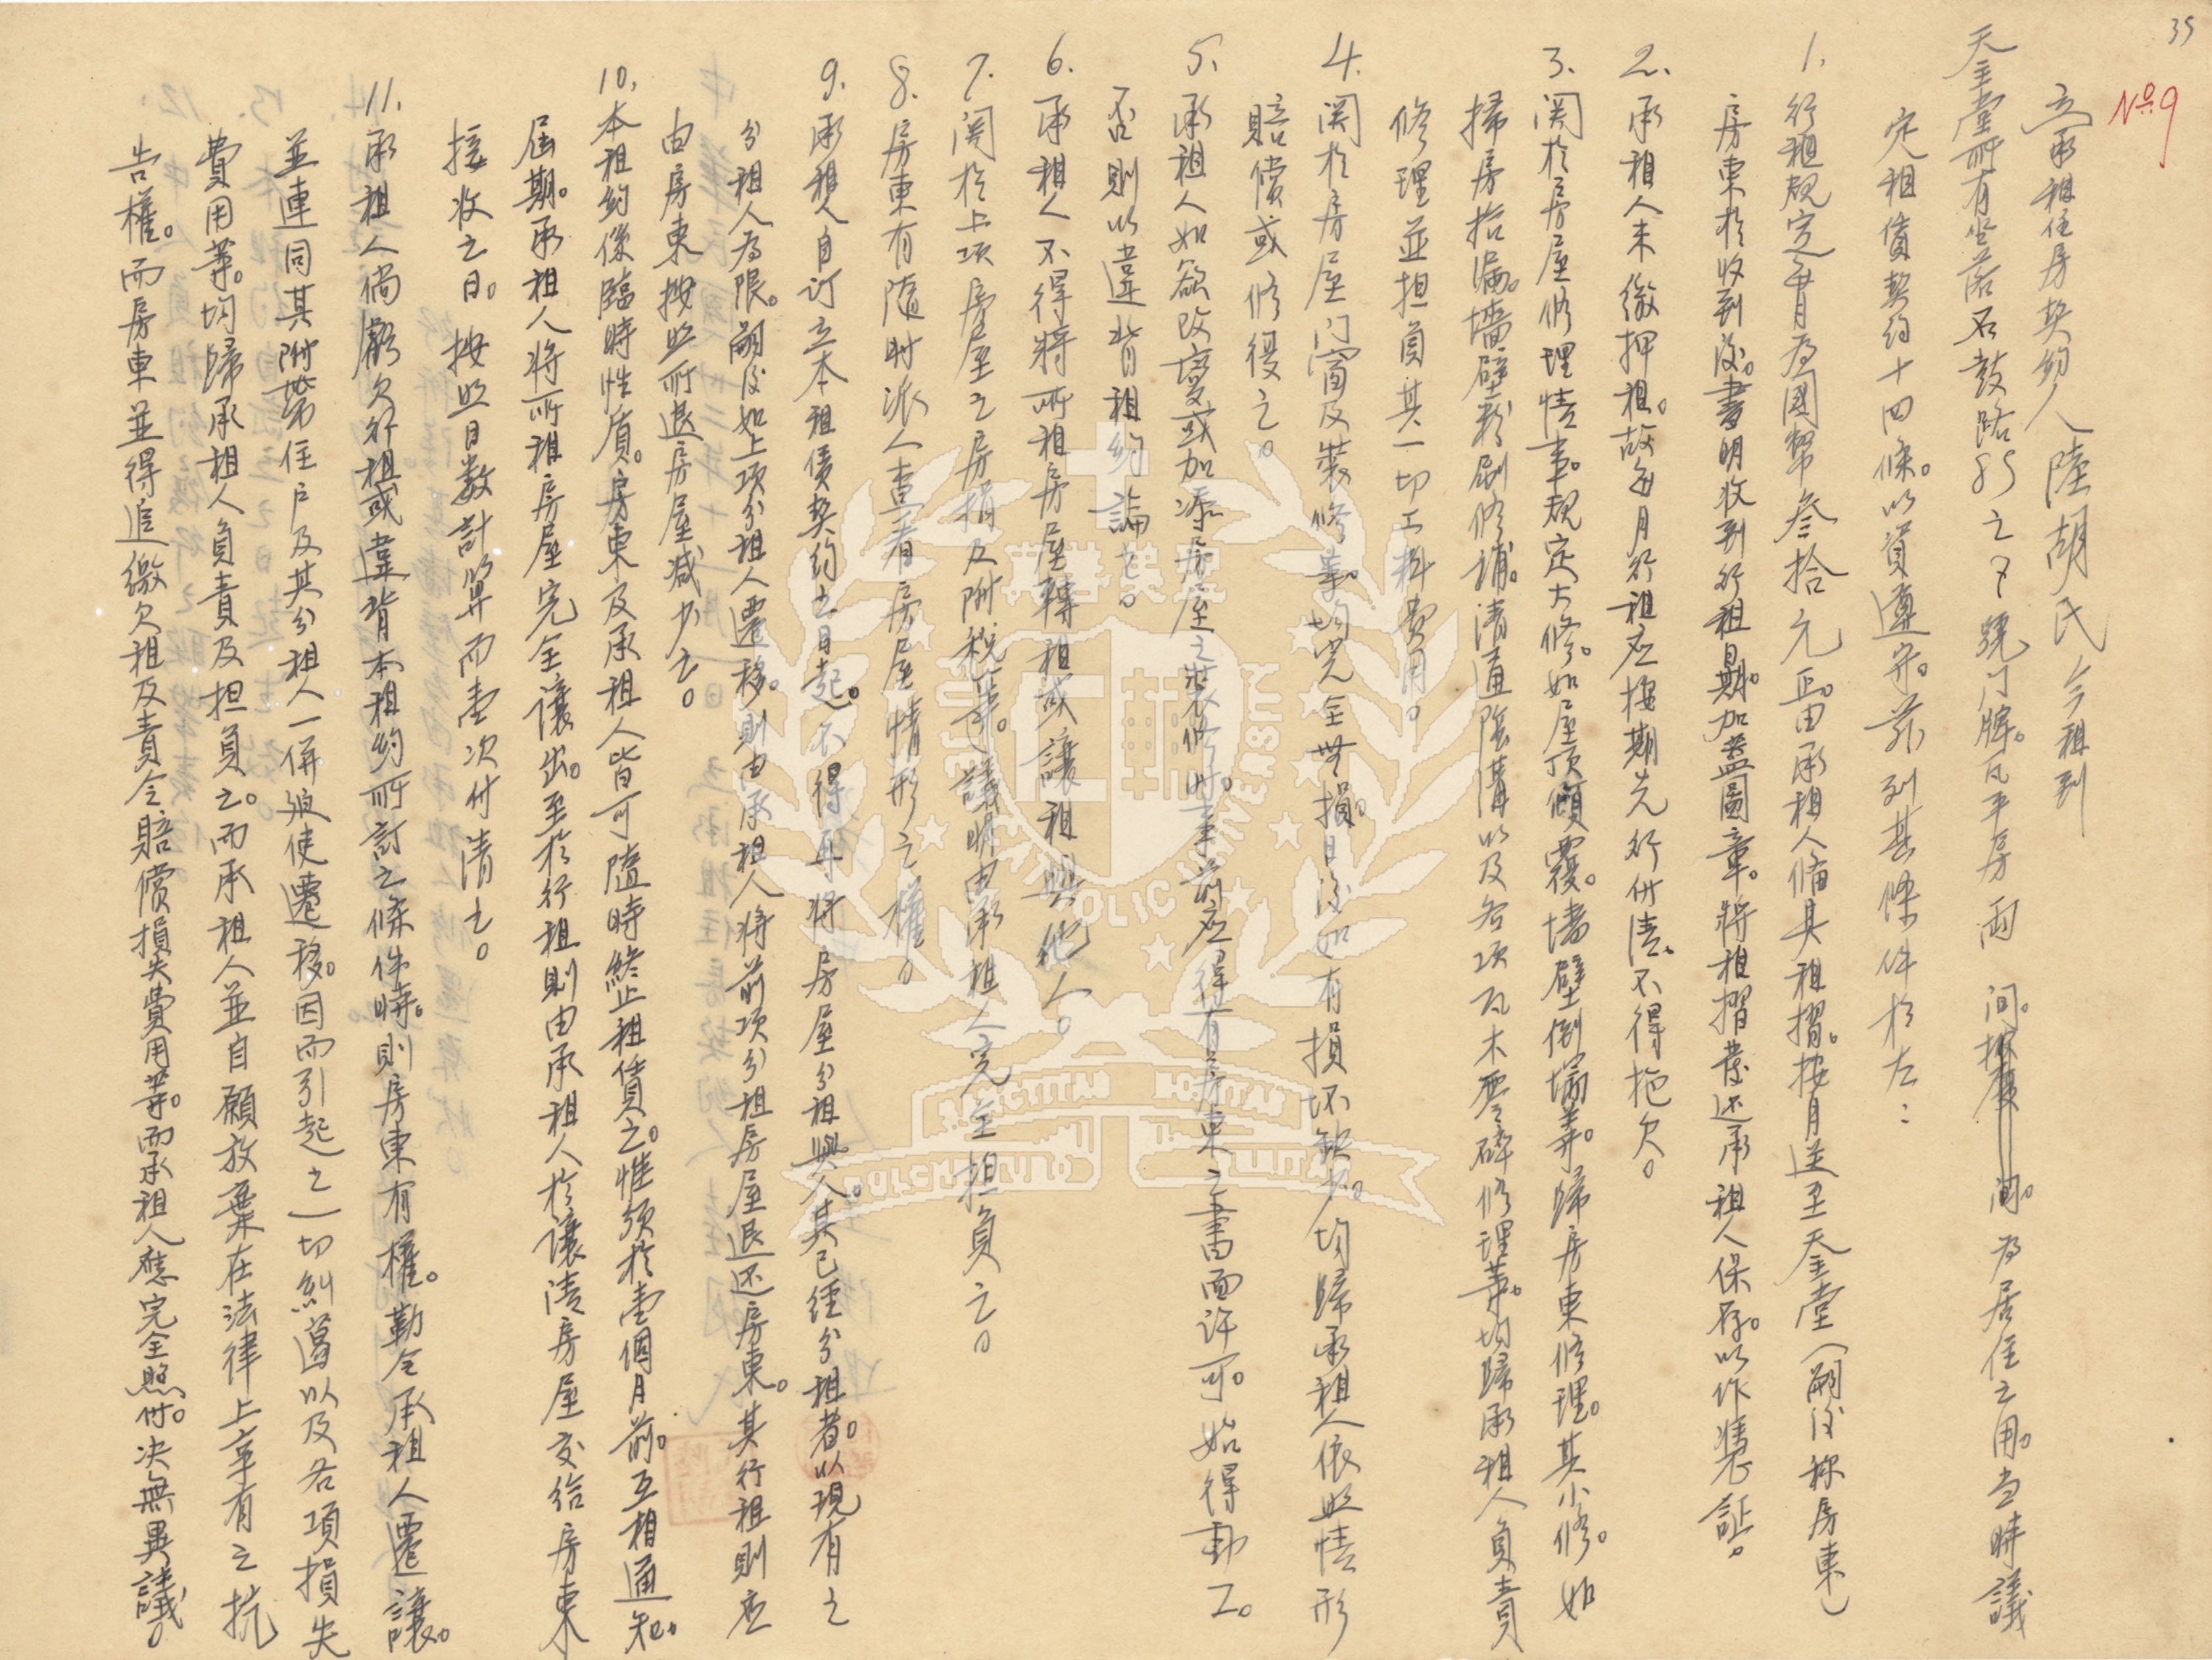 35
No 9
立承租住房契約人陸胡氏今租到
天主堂所有坐落石鼓路85之 號门牌。瓦平房兩间。 间。為居住之用。当時議
定租賃契約十四條。以資遵守。茲列其條件於左：
1. 行租規定每月為國幣叁拾元正。由承租人備具租摺。按月送至天主堂（嗣後称房東）
房東於收到後。書明收到行租日期。加蓋圖章。將租摺發还承租人保存。以作憑証。
2. 承租人未繳押租。故每月行租应按期先行付清。不得拖欠。
3. 関於房屋修理情事。規定大修。如屋顶傾覆。墻壁倒塌等。歸房東修理。其小修。如
掃房拾漏。墻壁粉刷修補。清通陰溝以及各项瓦木零碎修理等。均歸承租人負責
修理並担負其一切工料費用。
4. 関於房屋门窗及裝修等。均完全無損。日後如有損坏缺少。均歸承租人依照情形
賠償或修復之。
5. 承租人如欲改變或加添房屋之裝修时。事前应得有房東之書面许可。始得動工。
否則以違背租約論之。
6. 承租人不得將所租房屋轉租或讓租與他人。
7. 関於上项房屋之房捐及附税等。議明由承租人完全担負之。
8. 房東有隨时派人查看房屋情形之權。
9. 承租人自订立本租賃契約之日起。不得再將房屋分租與人。其已經分租者。以現有之
分租人為限。嗣後如上项分租人遷移。則由承租人將前项分租房屋退还房東。其行租則应
由房東按照所退房屋減少之。
10. 本租約係臨時性质。房東及承租人皆可隨時終止租賃之。惟须於壹個月前。互相通知。
屆期。承租人將所租房屋完全讓出。至於行租則由承租人於讓清房屋交给房東
接收之日。按照日数計算而壹次付清之。
11. 承租人倘虧欠行租或違背本租約所訂之條件時。則房東有權。勒令承租人遷讓。
並連同其附帶住户及其分租人一併迫使遷移。因而引起之一切糾葛以及各項損失
費用等。均歸承租人負責及担負之。而承租人並自願放棄在法律上享有之抗
告權。而房東並得追繳欠租及責令賠償損失費用等。而承租人應完全照付。决無異議。